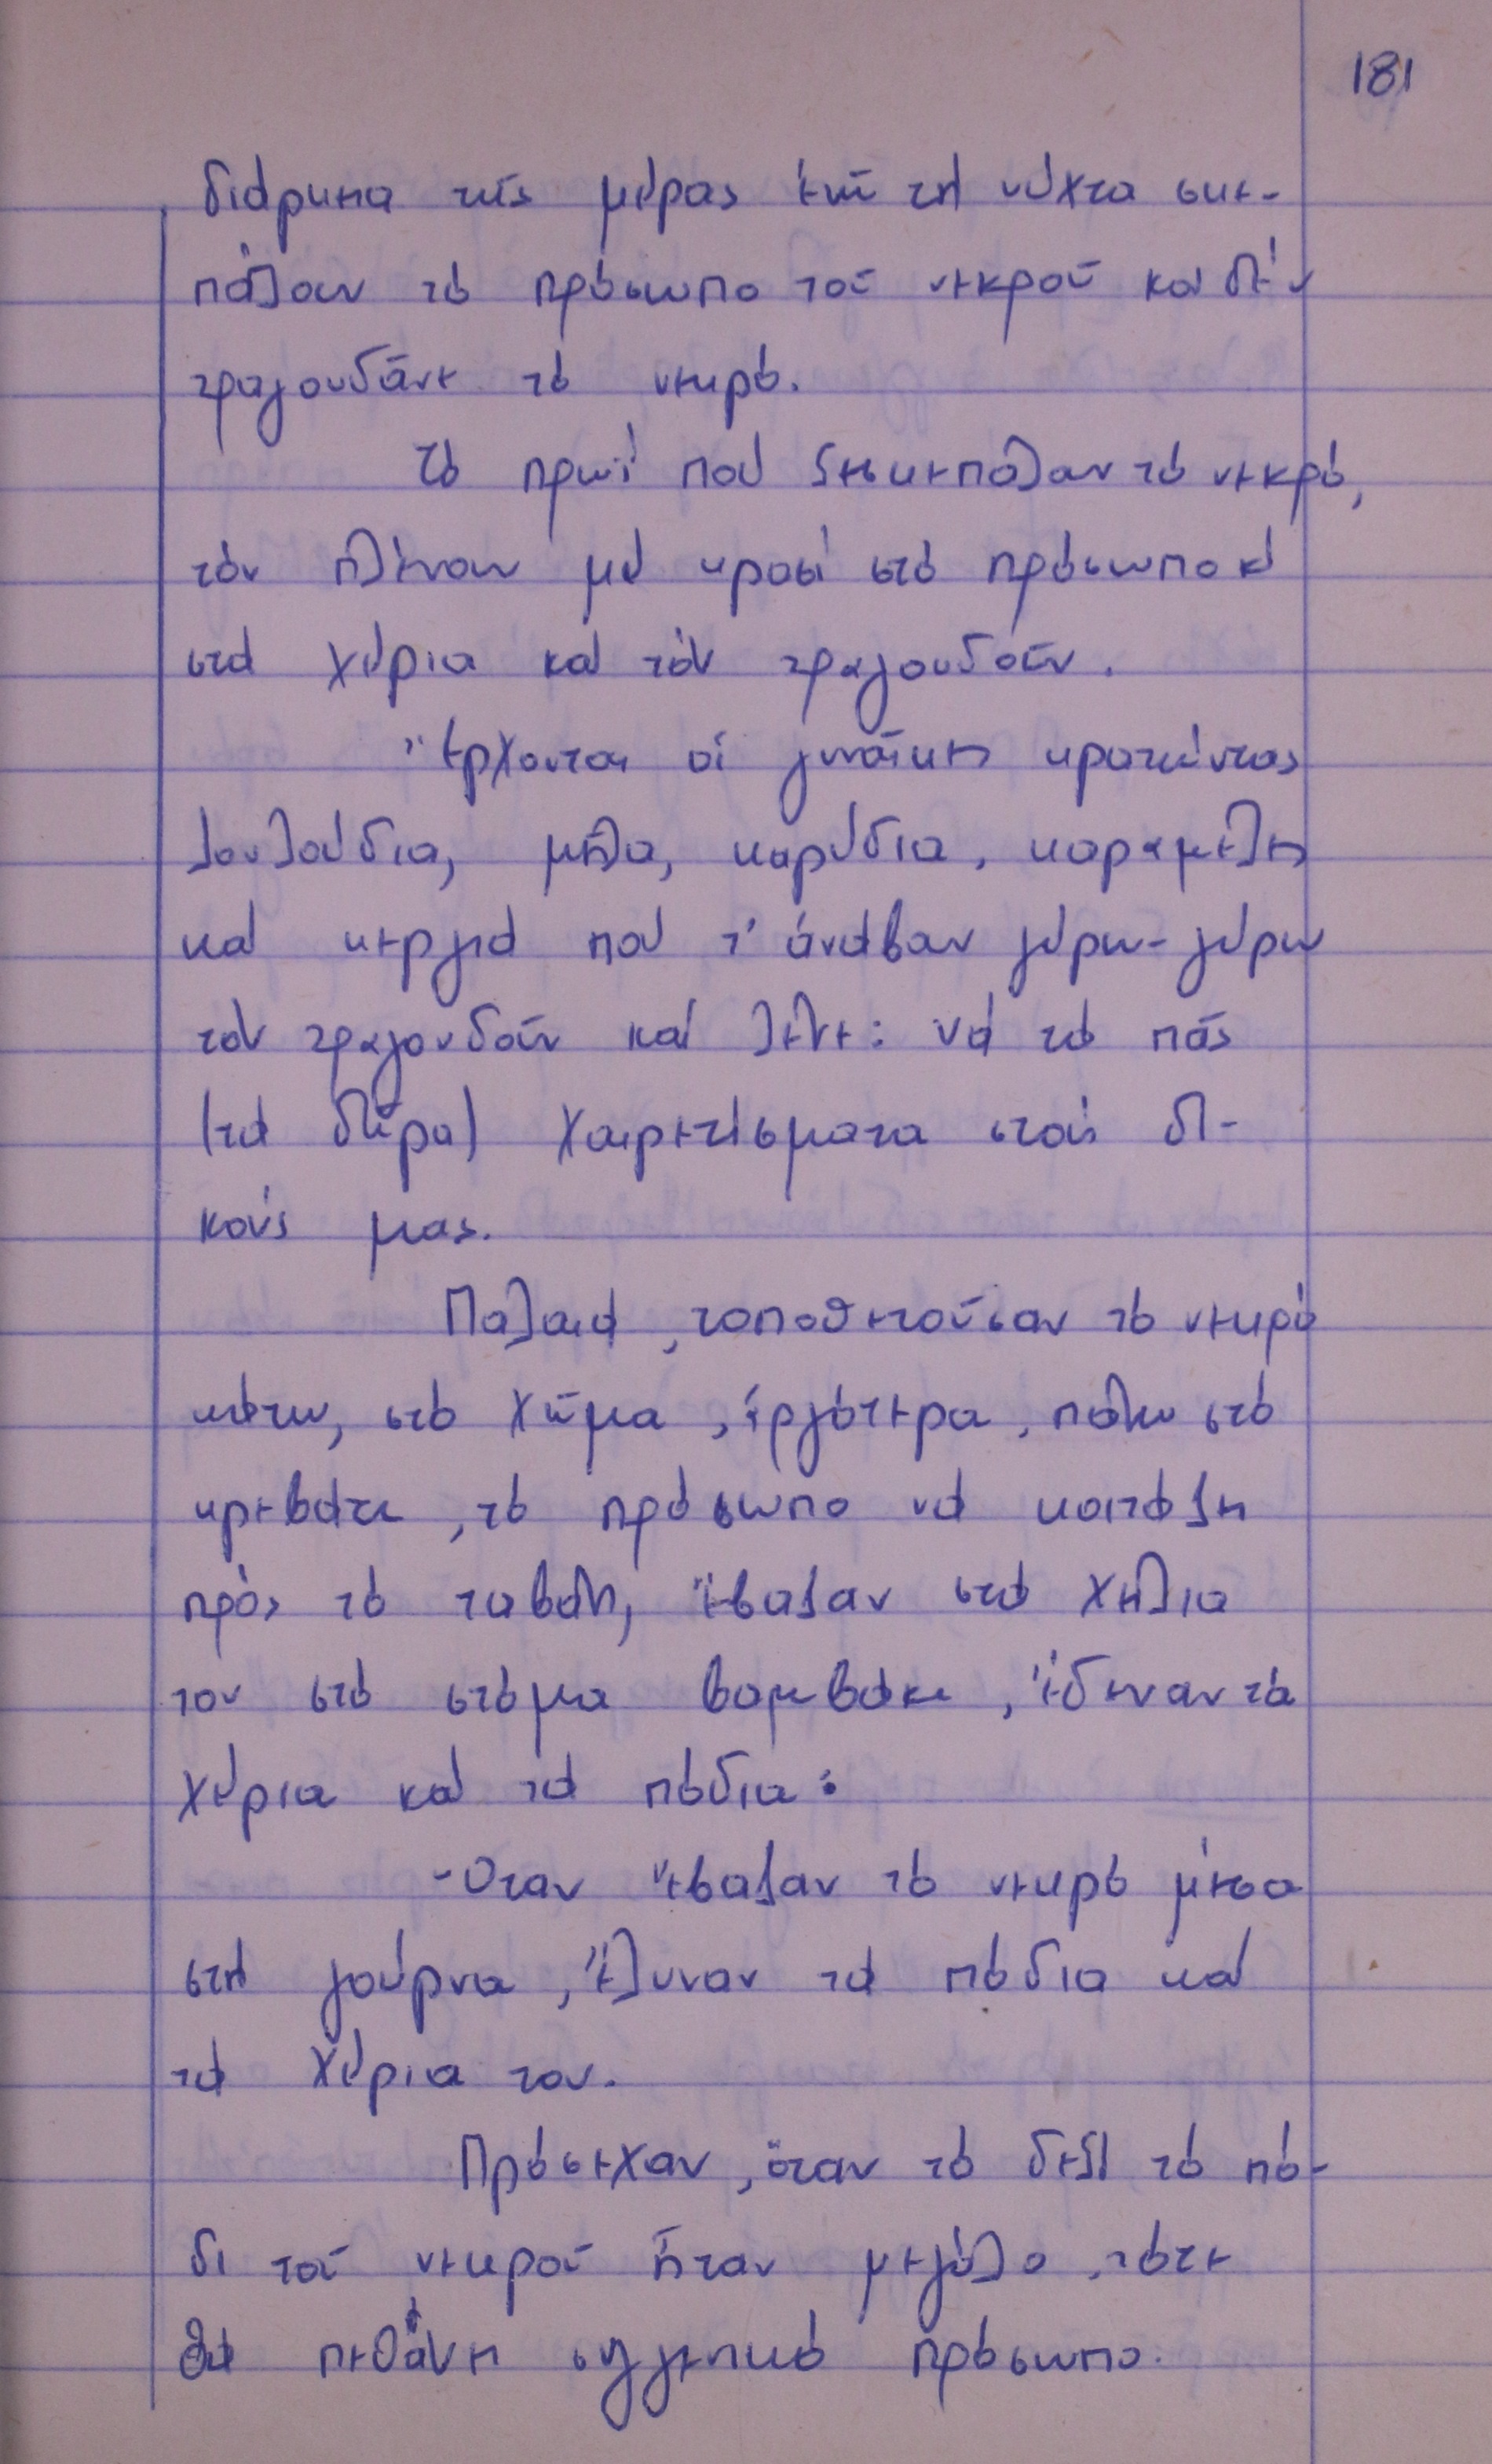 181
διάρκεια τῆς μέρας ἐνῶ τή νύχτα σκε-
πάζουν τό πρόσωπο τοῦ νεκροῦ καί δέν
τραγουδᾶνε τό νεκρό.
Τό πρωΐ πού ξεσκεπάζαν τό νεκρό,
τόν πλέναν μέ κρασί στό πρόσωπο κί
στά χέρια καί τόν τραγουδοῦν.
Ἔρχονται οἱ γυναῖκες κρατώντας
λουλούδια, μῆλα, καρύδια, καραμέλες
καί κεργιά πού τ' ἀνάβαν γύρω-γύρω
τόν τραγουδοῦν καί λένε: νά τό πᾶς
(τά δῶρα) χαιρετίσματα στούς δι-
κούς μας.
Παλαιά, τοποθετοῦσαν τό νεκρό
κάτω, στό χῶμα, ἀργότερα, πάνω στό
κρεβάτι, τό πρόσωπο νά κοιτάζει
πρός τό ταβάνι, ἔβαζαν στά χείλια
του στό στόμα βαμβάκι, ἔδεναν τά
χέρια καί τά πόδια:
Ὅταν ἔβαζαν τό νεκρό μέσα
στή γούρνα, ἔλυναν τά πόδια καί
τά χέρια του.
Πρόσεχαν, ὅταν τό δεξί τό πό-
δι τοῦ νεκροῦ ἦταν μεγάλο, τότε
θά πεθάνει συγγενικό πρόσωπο.